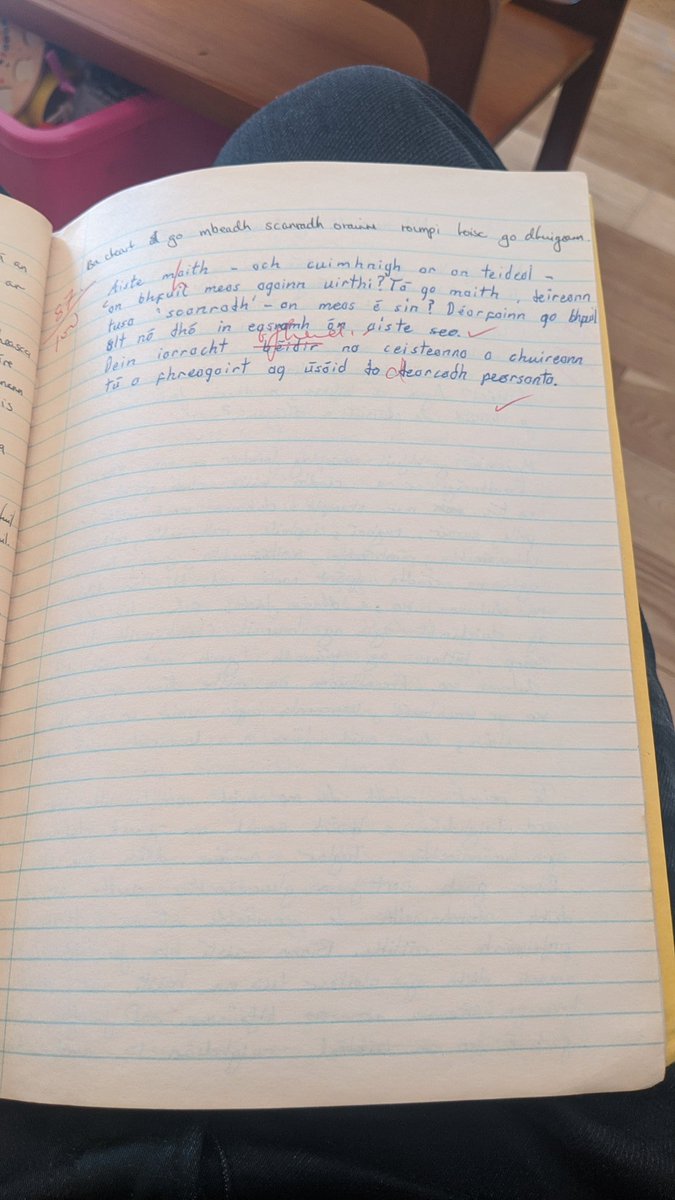 an
ar
is
Ba cheart go mbeadh scanradh orainn roimpi toisc go dtuigeann.
87
100
Aiste mhaith - ach cuimhnigh ar an teideal -
'an bhfuil meas againn uirthi? Tá go maith, deireann
tusa 'scanradh' - an meas é sin? Déarfainn go bhfuil
alt nó dhó in easnamh ón aiste seo.
Dein iarracht beidir na ceisteanna a chuireann
tú a fhreagairt ag úsáid do dearcadh pearsanta.